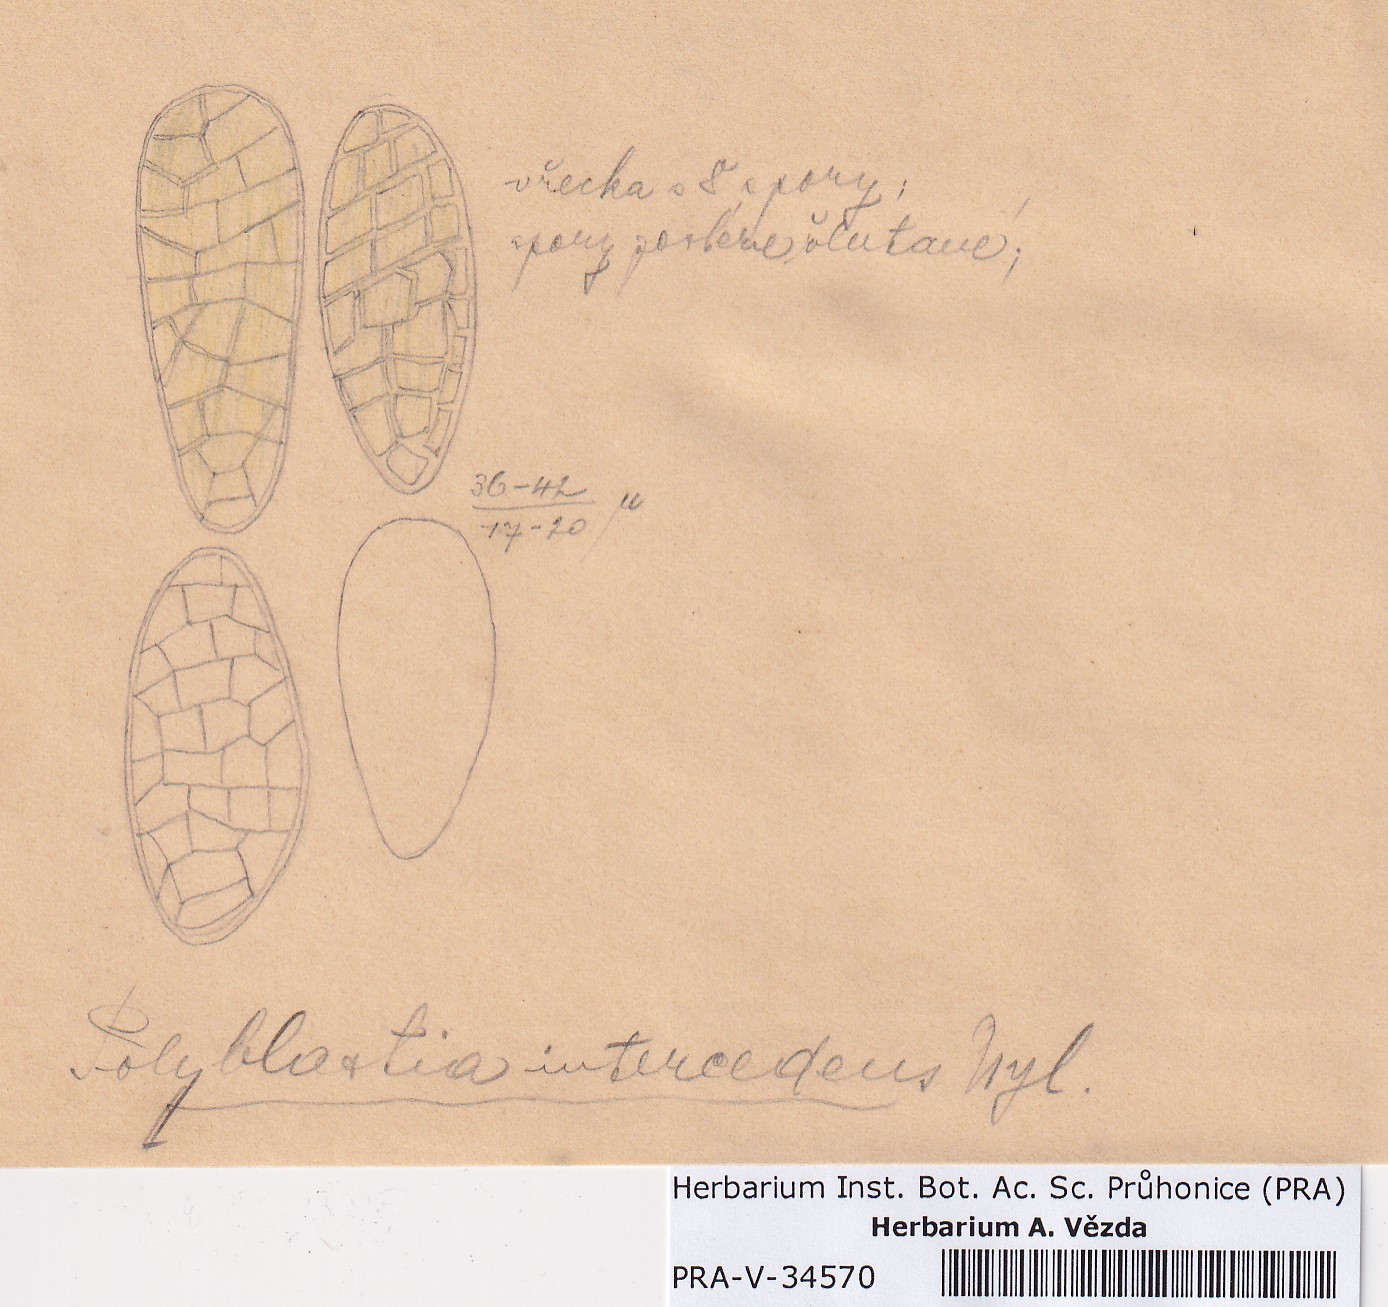 vřecka s 8 spory;
spory posléze žlutavé;
36-42
17-20 µ
Polyblastia intercedens Nyl.
Herbarium Inst. Bot. Ac. Sc. Průhonice (PRA)
Herbarium A. Vězda
PRA-V-34570